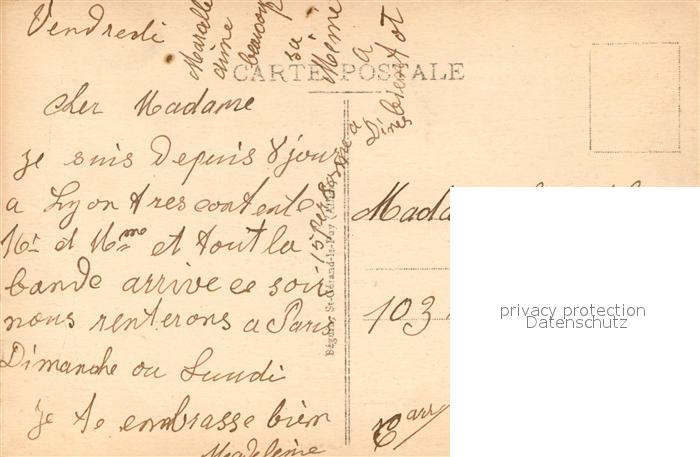 Vendredi
Cher Madame
je suis Depuis 8 jour
a Lyon tres contente
Mr et Mme et tout la
bande arrive ce soir
nous renterons a Paris
Dimanche ou Lundi
je te embrasse bien
Madeleine
aime
beaucoup
sa
Mème
a
bientot
15 Personne a
Diner
CARTE POSTALE
Bégorn, St-Gérand-le-Puy
Mada
103
privacy protection
Datenschutz